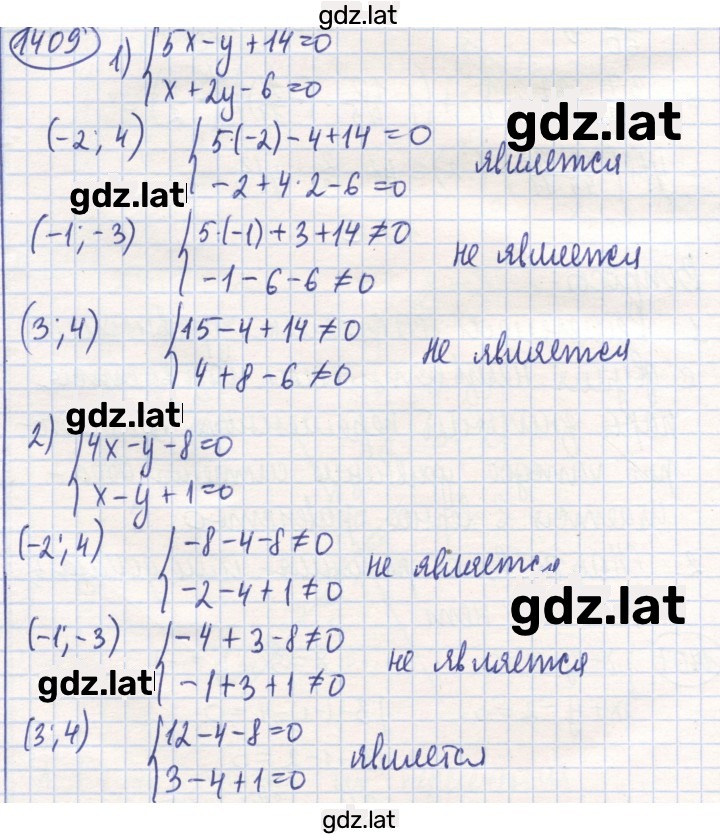 gdz.lat
1409 1) { 5x-y+14=0
x+2y-6=0
gdz.lat
(-2; 4) { 5·(-2)-4+14=0
-2+4·2-6=0 является
gdz.lat
(-1; -3) { 5·(-1)+3+14≠0
-1-6-6≠0 не является
(3; 4) { 15-4+14≠0
4+8-6≠0 не является
gdz.lat
2) { 4x-y-8=0
x-y+1=0
(-2; 4) { -8-4-8≠0
-2-4+1≠0 не является
gdz.lat
(-1; -3) { -4+3-8≠0
-1+3+1≠0 не является
gdz.lat
(3; 4) { 12-4-8=0
3-4+1=0 является
gdz.lat